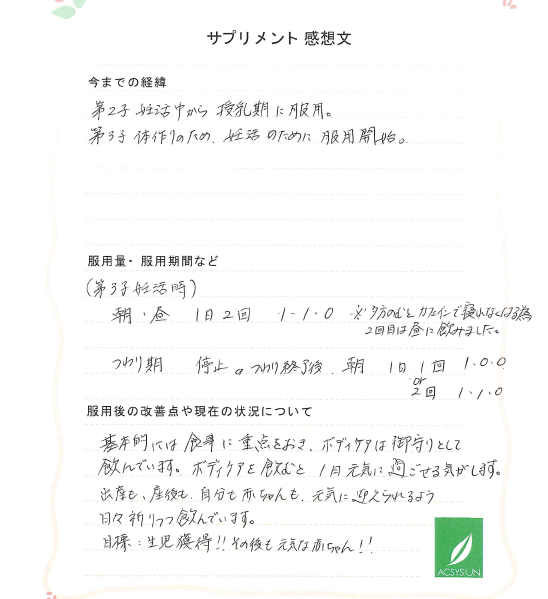 サプリメント 感想文
今までの経緯
第2子 妊活中から 授乳期に服用。
第3子 体作りのため、妊活のために 服用開始。
服用量・服用期間など
(第3子妊活時)
朝・昼 1日2回 1-1-0 ※夕方のむと カフェインで寝れなくなる為
2回目は昼に飲みました。
つわり期 停止。つわり終了後、朝 1日 1回 1.0.0
or
2回 1.1.0
服用後の改善点や現在の状況について
基本的には 食事に重点をおき、ボディケアは御守りとして
飲んでいます。ボディケアを飲むと 1月元気に過ごせる気がします。
出産も、産後も、自分も赤ちゃんも、元気に迎えられるよう
日々祈りつつ飲んでいます。
目標:生児獲得!!その後も元気な赤ちゃん!!
ACSYSIUN